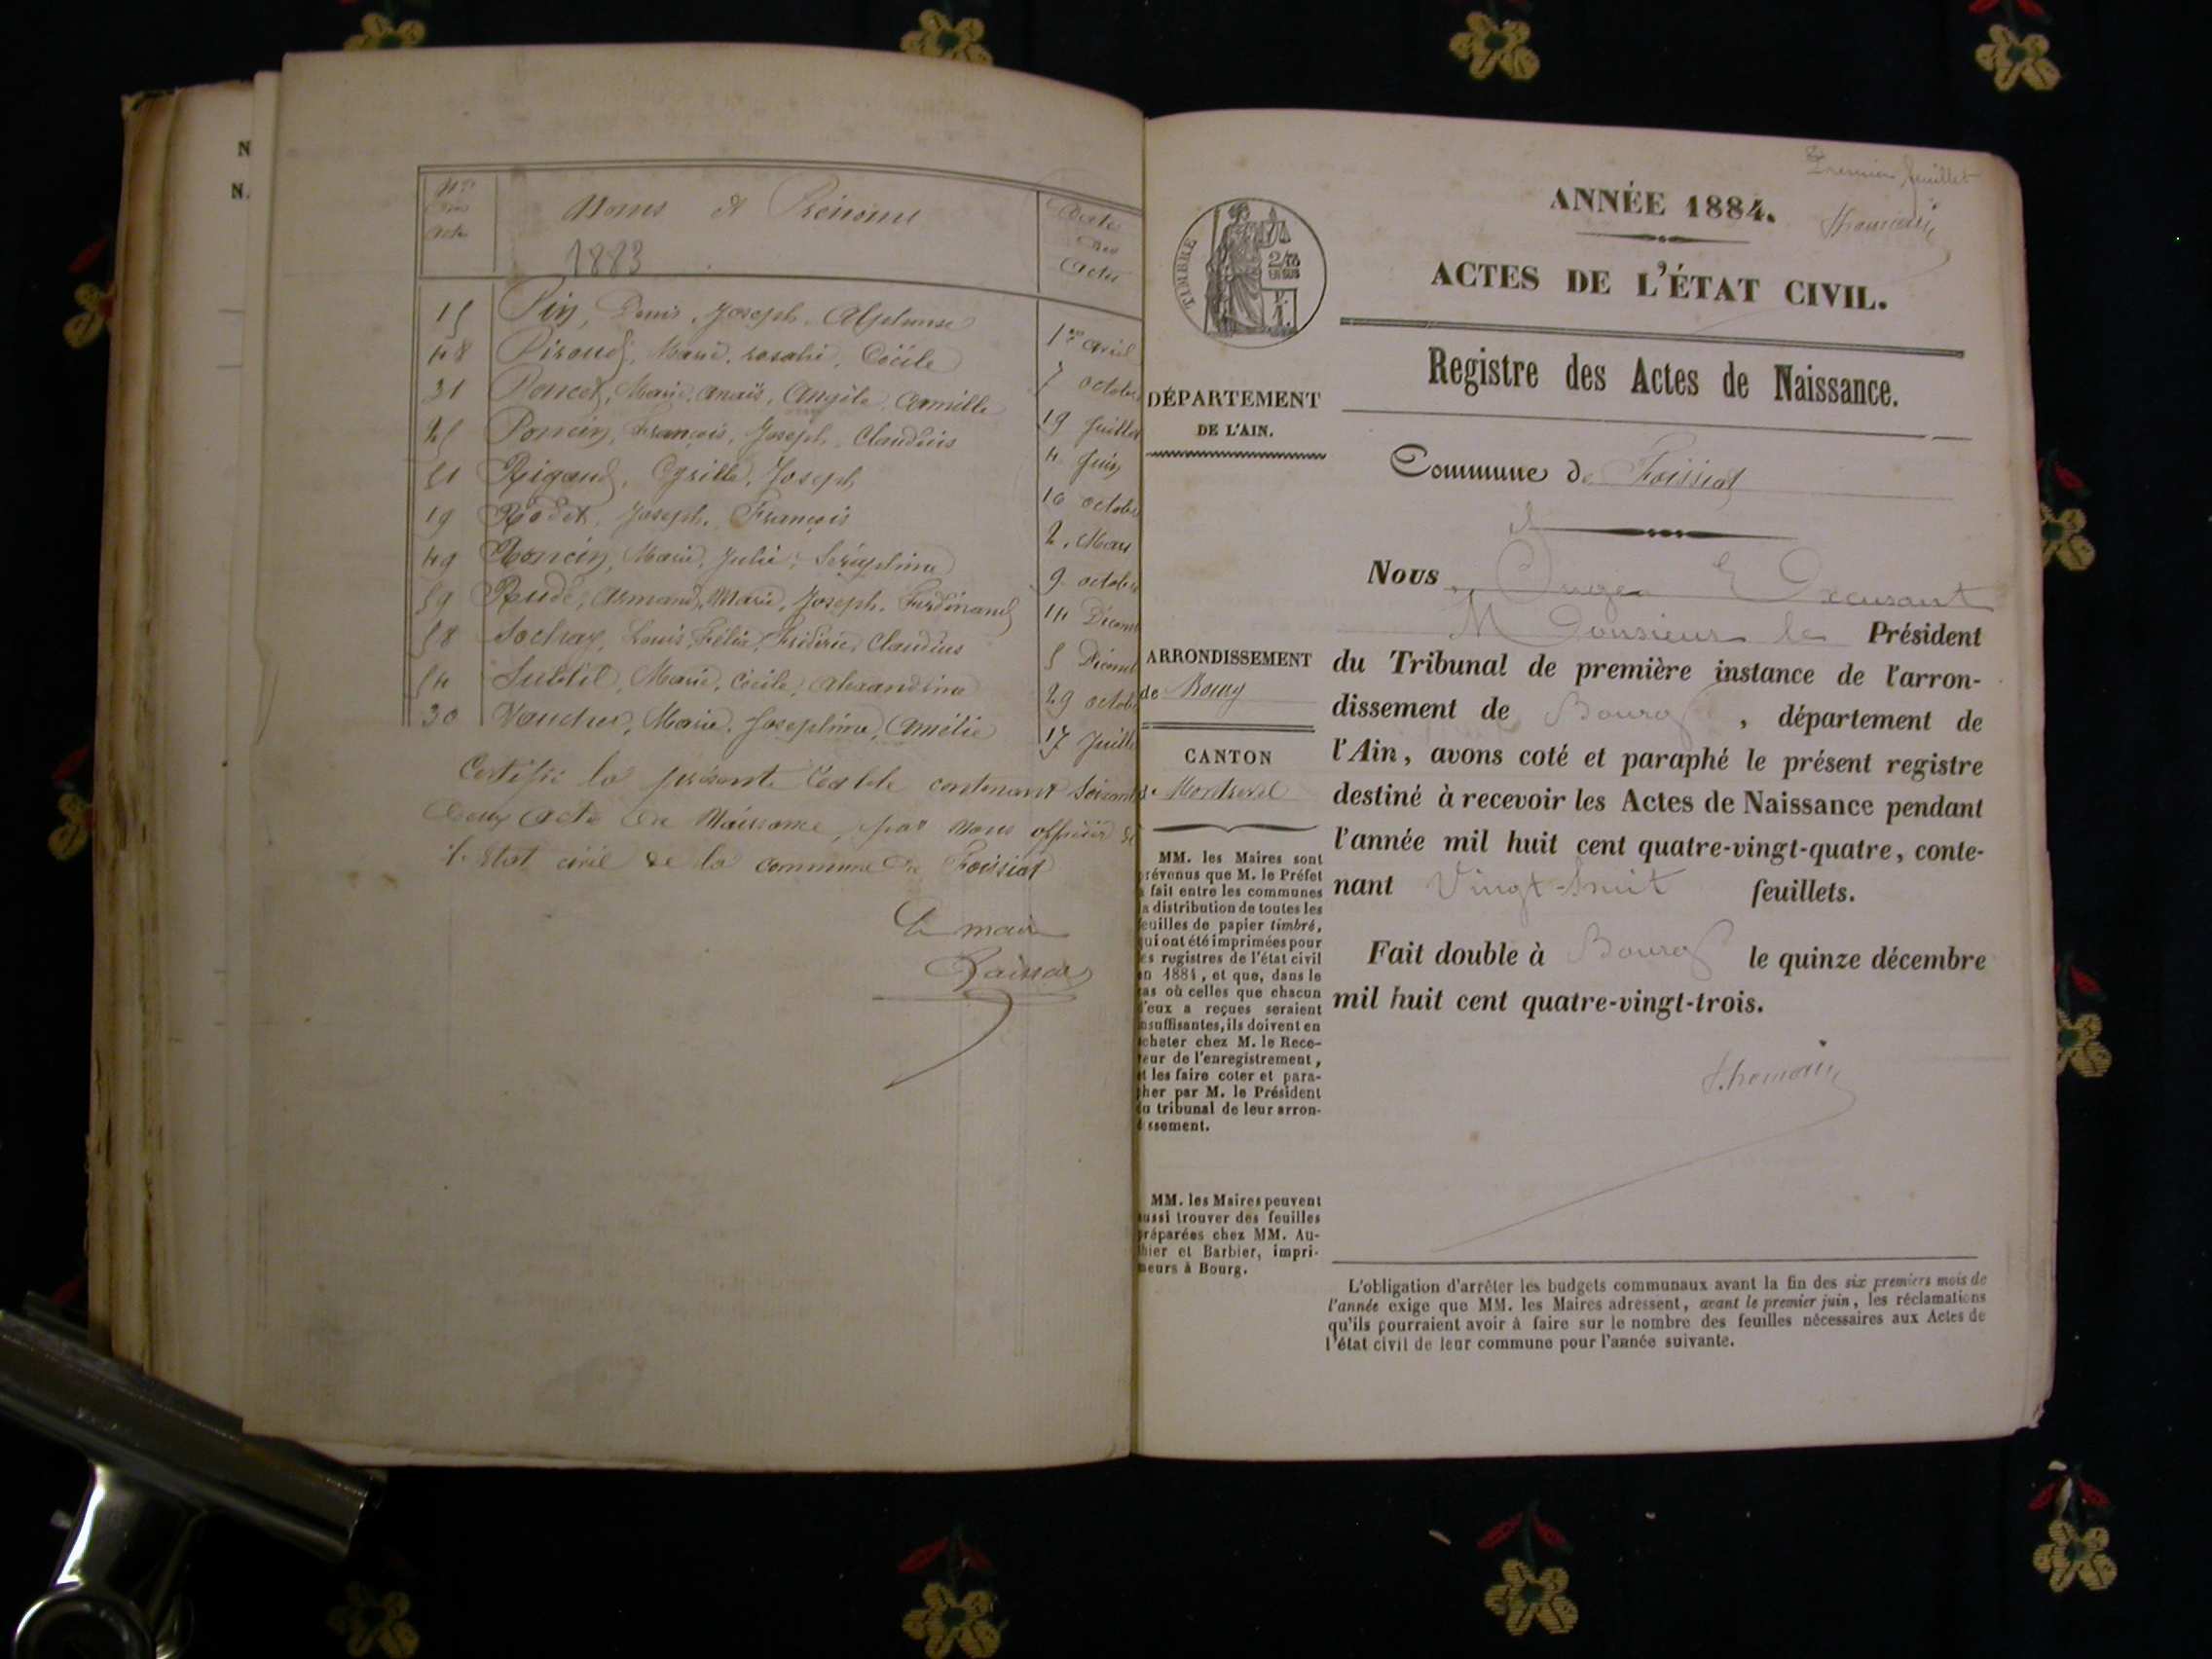 N
N.
Nos
des
Actes
Noms et Prénoms
1883
Dates
des
Actes
15 Pin, Denis, Joseph, Alphonse 1er avril
48 Piroud, Marie, rosalie, Cécile 7 octobre
31 Poncet, Marie, Anaïs, Angèle, Camille 19 Juillet
25 Poncin, François, Joseph, Claudius 4 Juin
51 Rigaud, Cyrille, Joseph 16 octobre
19 Rodet, Joseph, François 2, Mai
49 Roncin, Marie, Julie, Séraphine 9 octobre
59 Rude, Armand, Marie, Joseph, Ferdinand 14 Décem
58 Sochay, Louis, Félix, Fridéric, Claudius 5 Décem
54 Subtil, Marie, Cécile, Alexandrine 29 octob
30 Vaucher, Marie, Joséphine, Amélie 17 Juille
Certifié la présente Table contenant soixante
deux acte de Naissance, par nous officier de
l'Etat civil de la commune de Foissiat
Le maire
TIMBRE
2/10
EN SUS
Premier feuillet
ANNÉE 1884.
ACTES DE L'ÉTAT CIVIL.
Registre des Actes de Naissance.
DÉPARTEMENT
DE L'AIN.
Commune de Foissiat
Nous
Monsieur le Président
du Tribunal de première instance de l'arron-
dissement de Bourg, département de
l'Ain, avons coté et paraphé le présent registre
destiné à recevoir les Actes de Naissance pendant
l'année mil huit cent quatre-vingt-quatre, conte-
nant Vingt-huit feuillets.
Fait double à Bourg le quinze décembre
mil huit cent quatre-vingt-trois.
ARRONDISSEMENT
de Bourg
CANTON
de Montrevel
MM. les Maires sont
prévenus que M. le Préfet
a fait entre les communes
la distribution de toutes les
feuilles de papier timbré,
qui ont été imprimées pour
les registres de l'état civil
en 1884, et que, dans le
cas où celles que chacun
d'eux a reçues seraient
insuffisantes, ils doivent en
acheter chez M. le Rece-
veur de l'enregistrement,
et les faire coter et para-
pher par M. le Président
du tribunal de leur arron-
dissement.
MM. les Maires peuvent
aussi trouver des feuilles
préparées chez MM. Au-
thier et Barbier, impri-
meurs à Bourg.
L'obligation d'arrêter les budgets communaux avant la fin des six premiers mois de
l'année exige que MM. les Maires adressent, avant le premier juin, les réclamations
qu'ils pourraient avoir à faire sur le nombre des feuilles nécessaires aux Actes de
l'état civil de leur commune pour l'année suivante.